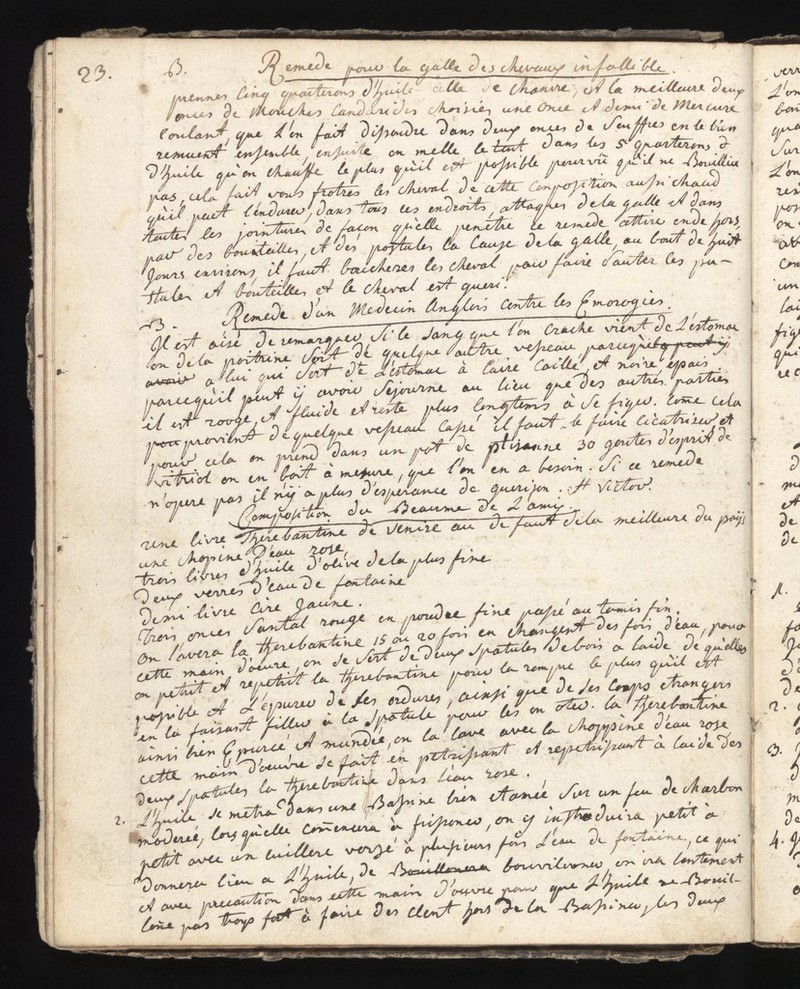 23.
B. Remede pour la galle des chevaux infallible.
prennes Cinq quarterons d'huile celle de Chanvre, et la meilleure deux
onces de Mouches Candarides choisies une once et demi de Mercure
Coulant, que l'on fait dissoudre dans deux onces de Souffres en le bien
remuent ensemble, ensuite on melle le tout dans les 5 quarterons d
d'huile qu'on chauffe le plus qu'il est possible pourvû qu'il ne Bouillie
pas, cela fait vous frottes les cheval de cette Composition aussi chaud
qu'il peut l'endurer, dans tous ces endroits attaques de la galle et dans
toutes les jointures de facon qu'elle penétre ce remede attire en dehors,
par des bouteilles, et des postules la Cause de la galle, au bout de huit
Jours environs, il faut les cheval pour faire sauter les pu-
stules et bouteilles et le cheval est queri.
B. Remede d'un Medecin Anglois contre les Emorogies.
Il est aisé de remarquer si le sang que l'on crache vient de l'estomac
ou de la poitrine sort de quelque autre vesseau
a lui qui sort de l'estomac à Caire Caillé, et noire, epais
parcequ'il peut ij avoir sejourné au lieu que des autres parties
il est rouge, et fluide et reste plus longtems à se figer. Come cela
provient de quelque vesseau Cassé il faut le faire Cicatriser et
pour cela on prend dans un pot de ptisanne 30 goutes d'esprit de
vitriol on en boit à mesure, que l'on en a besoin. Si ce remede
n'opere pas il n'ij a plus d'esperance de guerison. St Victor.
Composition du Beaume de L'amij.
une livre Therebantine de Venise au de faut de la meilleure du païjs
une chopine d'eau rose,
trois livres d'huile d'olive de la plus fine
Deux verres d'eau de fontaine
Demi livre Cire Jaune.
Trois onces Santal rouge en poudre fine passé au tamis fin.
On lavera la therebantine 15 ou 20 fois en changent des fois d'eau, pour
cette main d'oeuvre, on se sert de deux spatules de bois a laide de quelles
on petrit et repetrit la therebantine pour la rompre le plus qu'il est
possible et l'epurer de ses ordures, ainsi que de ses Corps etrangers
en la faisant filler à la spatule pour les en oter. la therebantine
ainsi bien Epurcé et mundée, on la lave avec la chopine d'eau rose
cette main d'oeuvre se fait en petrissant et repetrissant à laide des
deux spatules la therebantine dans leau rose.
2. L'huile se metra dans une Bassine bien etamée sur un feu de charbon
moderée, lors qu'elle comencera à frissoner, on ij introduira petit à
petit avec un cuillere versé à plusieurs fois l'eau de fontaine, ce qui
donnera lieu a l'huile, de on ira lentement
et avec precaution dans cette main d'ouvre pour que l'huile ne Bouil-
lone pas trop fort à faire des hors de la Bassine, les deux